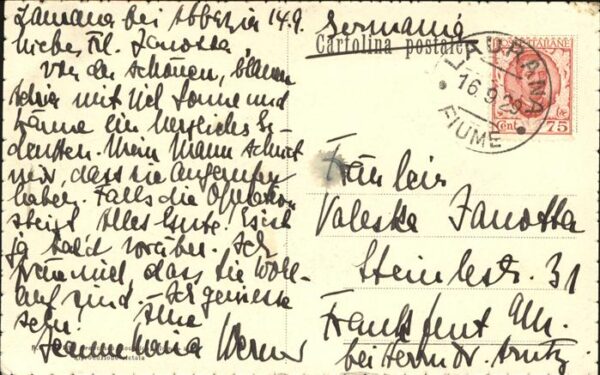 Laurana bei Abbazia 14.9.
Liebes Frl. Janotta,
Von der schönen, blauen
Adria mit viel Sonne und
Wärme ein herzliches Ge-
denken. Mein Mann schreibt
mir, dass Sie angerufen
haben. Falls die Operation
steigt Alles Gute. Es ist
ja bald vorüber. Ich
freue mich, dass Sie wohl-
auf sind. Ich geniesse
sehr. Ihre
Jeanne Maria Werner
Germania
Cartolina postale
POSTE ITALIANE
Cent. 75
LAURANA
16.9.29
FIUME
Fräulein
Valeska Janotta
Steinlestr. 31
Frankfurt a/M.
bei Herrn Dr.